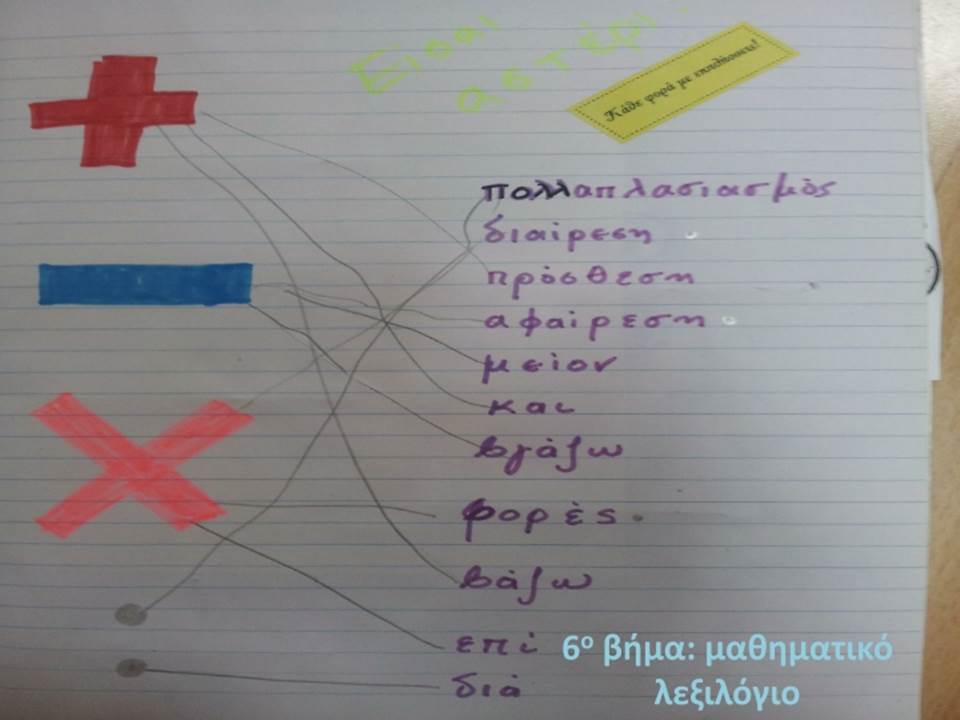 Είσαι
αστέρι!
Κάθε φορά με εκπλήσσεις!
πολλαπλασιασμὸς
διαίρεση
πρὸσθεση
αφαίρεση
μεὶον
και
βγὰζω
φορὲς
βὰζω
επὶ
διὰ
6ο βήμα: μαθηματικό
λεξιλόγιο